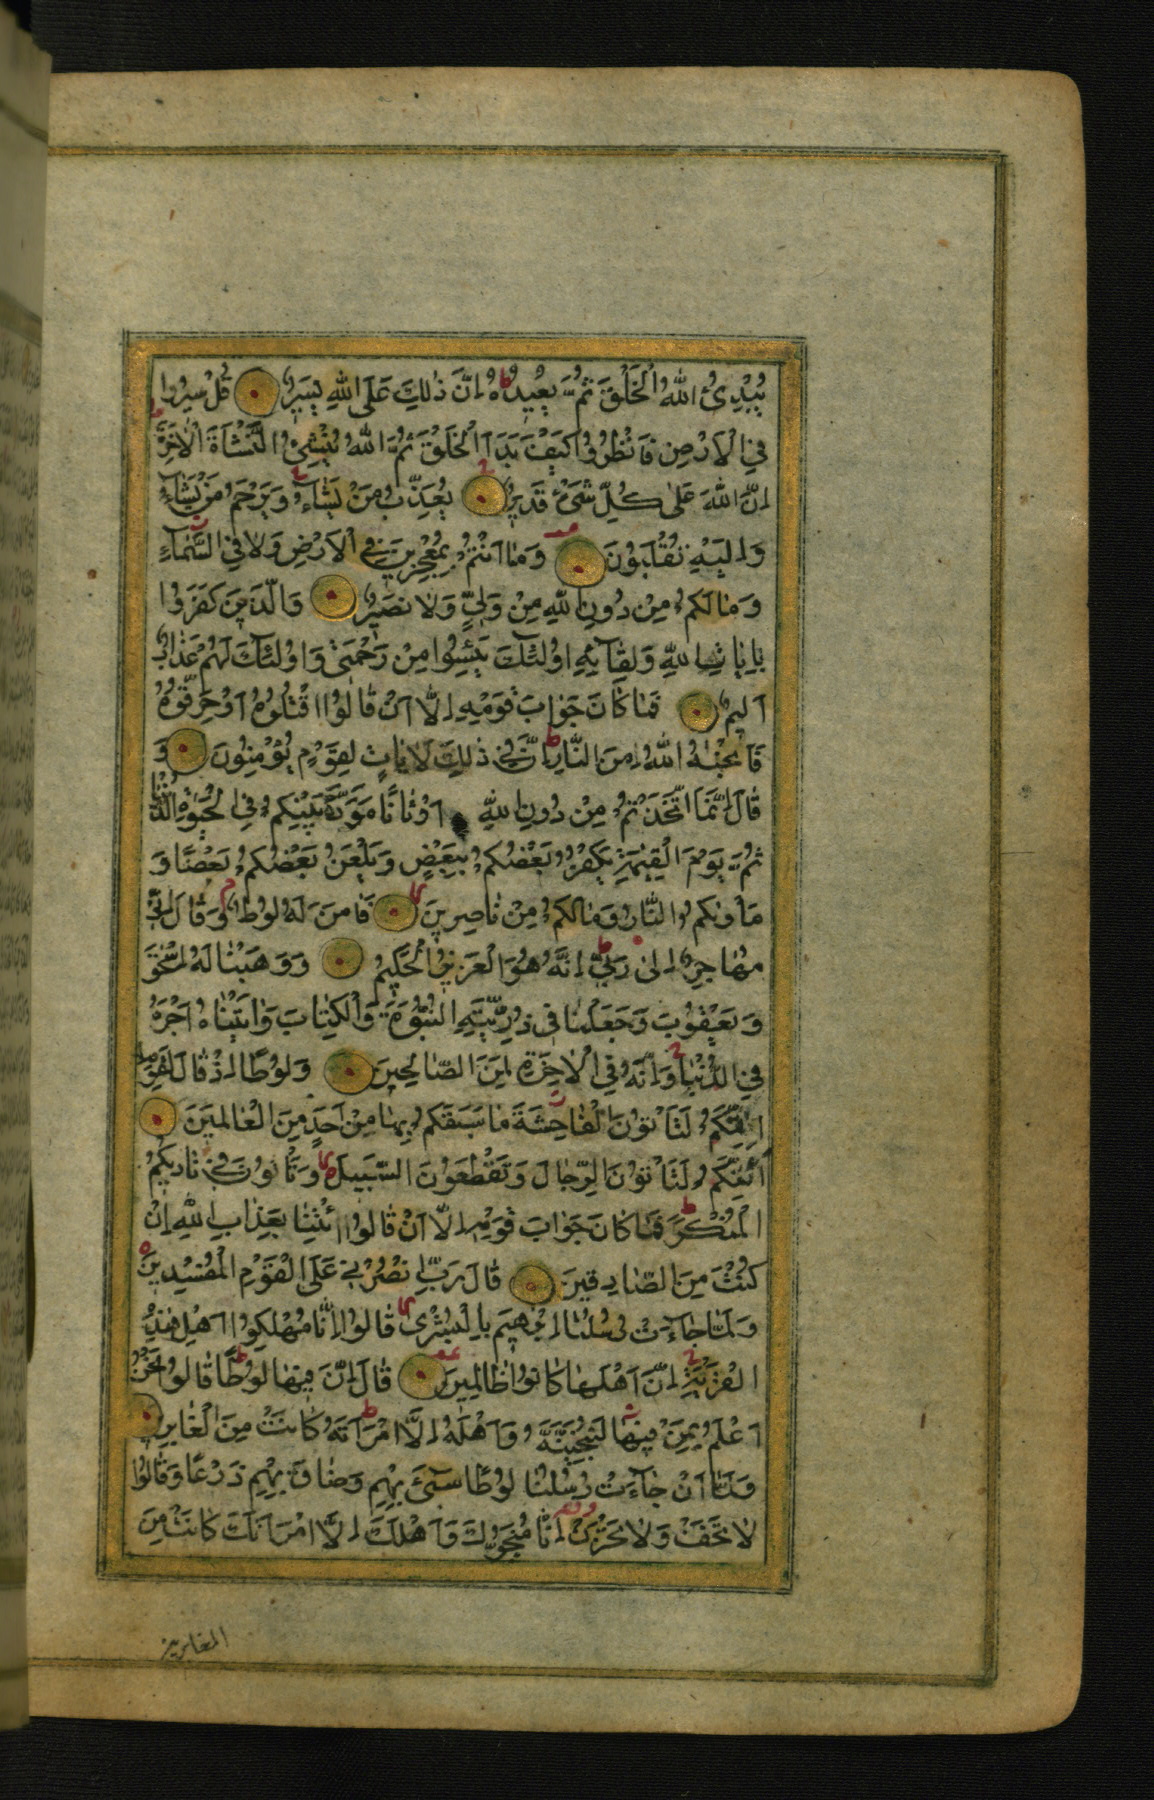 يُبْدِئُ اللّٰهُ الْخَلْقَ ثُمَّ يُعِيدُهُ اِنَّ ذٰلِكَ عَلَى اللّٰهِ يَسِيرٌ قُلْ سِيرُوا
فِي الْاَرْضِ فَانْظُرُوا كَيْفَ بَدَاَ الْخَلْقَ ثُمَّ اللّٰهُ يُنْشِئُ النَّشْاَةَ الْاٰخِرَةَ
اِنَّ اللّٰهَ عَلٰى كُلِّ شَىْءٍ قَدِيرٌ يُعَذِّبُ مَنْ يَشَاءُ وَيَرْحَمُ مَنْ يَشَاءُ
وَاِلَيْهِ تُقْلَبُونَ وَمَا اَنْتُمْ بِمُعْجِزِينَ فِي الْاَرْضِ وَلَا فِي السَّمَاءِ
وَمَا لَكُمْ مِنْ دُونِ اللّٰهِ مِنْ وَلِيٍّ وَلَا نَصِيرٍ وَالَّذِينَ كَفَرُوا
بِاٰيَاتِ اللّٰهِ وَلِقَائِهِ اُولٰئِكَ يَئِسُوا مِنْ رَحْمَتِي وَاُولٰئِكَ لَهُمْ عَذَابٌ
اَلِيمٌ فَمَا كَانَ جَوَابَ قَوْمِهِ اِلَّا اَنْ قَالُوا اقْتُلُوهُ اَوْ حَرِّقُوهُ
فَاَنْجٰيهُ اللّٰهُ مِنَ النَّارِ اِنَّ فِي ذٰلِكَ لَاٰيَاتٍ لِقَوْمٍ يُؤْمِنُونَ وَ
قَالَ اِنَّمَا اتَّخَذْتُمْ مِنْ دُونِ اللّٰهِ اَوْثَانًا مَوَدَّةَ بَيْنِكُمْ فِي الْحَيٰوةِ الدُّنْيَا
ثُمَّ يَوْمَ الْقِيٰمَةِ يَكْفُرُ بَعْضُكُمْ بِبَعْضٍ وَيَلْعَنُ بَعْضُكُمْ بَعْضًا وَ
مَاْوٰيكُمُ النَّارُ وَمَا لَكُمْ مِنْ نَاصِرِينَ فَاٰمَنَ لَهُ لُوطٌ وَقَالَ اِنِّي
مُهَاجِرٌ اِلٰى رَبِّي اِنَّهُ هُوَ الْعَزِيزُ الْحَكِيمُ وَوَهَبْنَا لَهُ اِسْحٰقَ
وَيَعْقُوبَ وَجَعَلْنَا فِي ذُرِّيَّتِهِ النُّبُوَّةَ وَالْكِتَابَ وَاٰتَيْنَاهُ اَجْرَهُ
فِي الدُّنْيَا وَاِنَّهُ فِي الْاٰخِرَةِ لَمِنَ الصَّالِحِينَ وَلُوطًا اِذْ قَالَ لِقَوْمِهِ
اِنَّكُمْ لَتَاْتُونَ الْفَاحِشَةَ مَا سَبَقَكُمْ بِهَا مِنْ اَحَدٍ مِنَ الْعَالَمِينَ
اَئِنَّكُمْ لَتَاْتُونَ الرِّجَالَ وَتَقْطَعُونَ السَّبِيلَ وَتَاْتُونَ فِي نَادِيكُمُ
الْمُنْكَرَ فَمَا كَانَ جَوَابَ قَوْمِهِ اِلَّا اَنْ قَالُوا ائْتِنَا بِعَذَابِ اللّٰهِ اِنْ
كُنْتَ مِنَ الصَّادِقِينَ قَالَ رَبِّ انْصُرْنِي عَلَى الْقَوْمِ الْمُفْسِدِينَ
وَلَمَّا جَاءَتْ رُسُلُنَا اِبْرٰهِيمَ بِالْبُشْرٰى قَالُوا اِنَّا مُهْلِكُوا اَهْلِ هٰذِهِ
الْقَرْيَةِ اِنَّ اَهْلَهَا كَانُوا ظَالِمِينَ قَالَ اِنَّ فِيهَا لُوطًا قَالُوا نَحْنُ
اَعْلَمُ بِمَنْ فِيهَا لَنُنَجِّيَنَّهُ وَاَهْلَهُ اِلَّا امْرَاَتَهُ كَانَتْ مِنَ الْغَابِرِينَ
وَلَمَّا اَنْ جَاءَتْ رُسُلُنَا لُوطًا سِىءَ بِهِمْ وَضَاقَ بِهِمْ ذَرْعًا وَقَالُوا
لَا تَخَفْ وَلَا تَحْزَنْ اِنَّا مُنَجُّوكَ وَاَهْلَكَ اِلَّا امْرَاَتَكَ كَانَتْ مِنَ
الغابرين